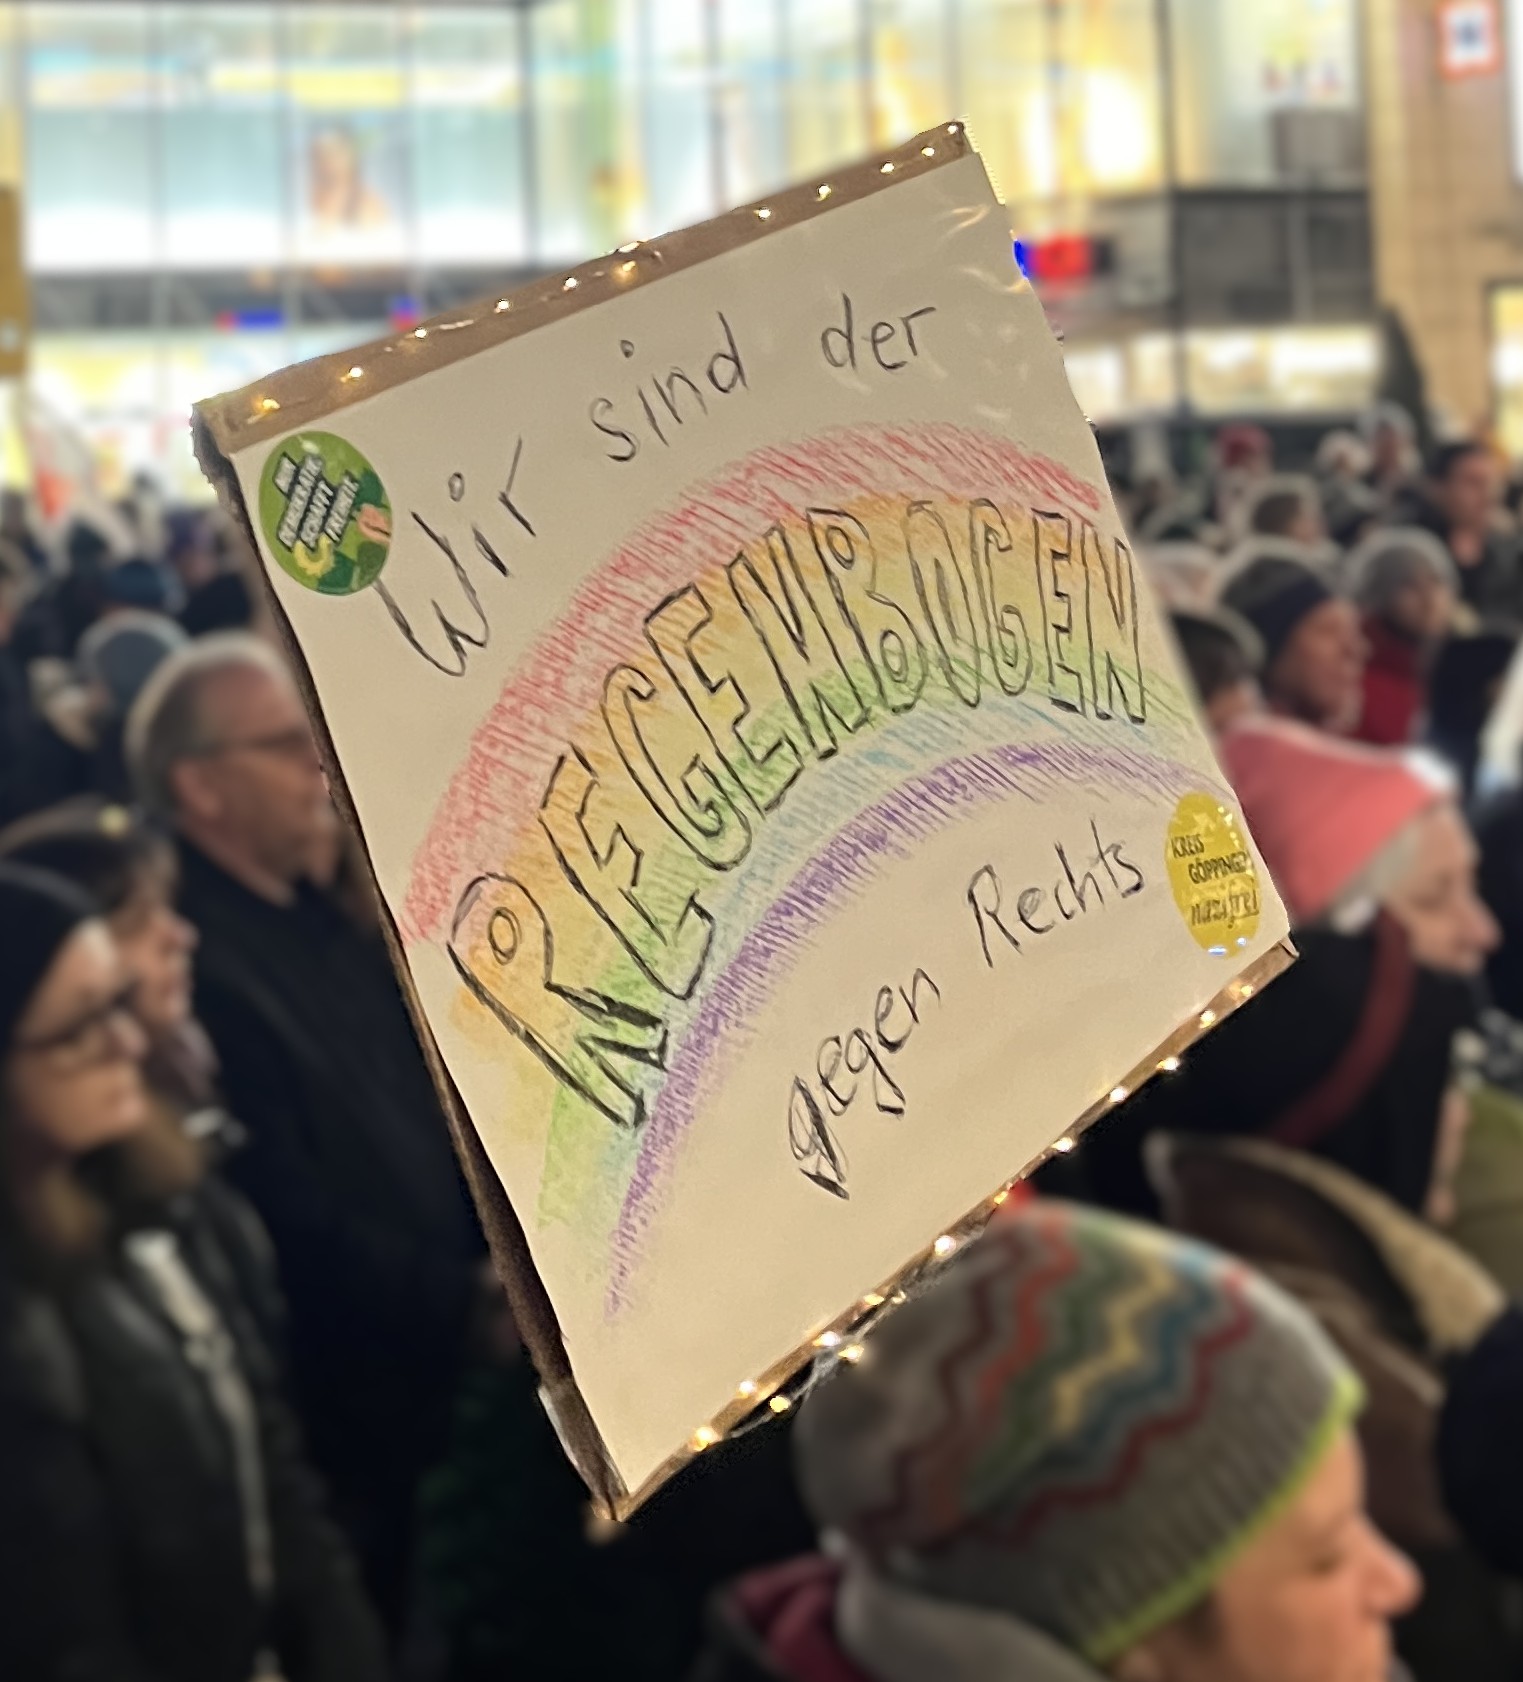 Wir sind der
REGENBOGEN
gegen Rechts
KREIS
GÖPPINGEN
nazifrei